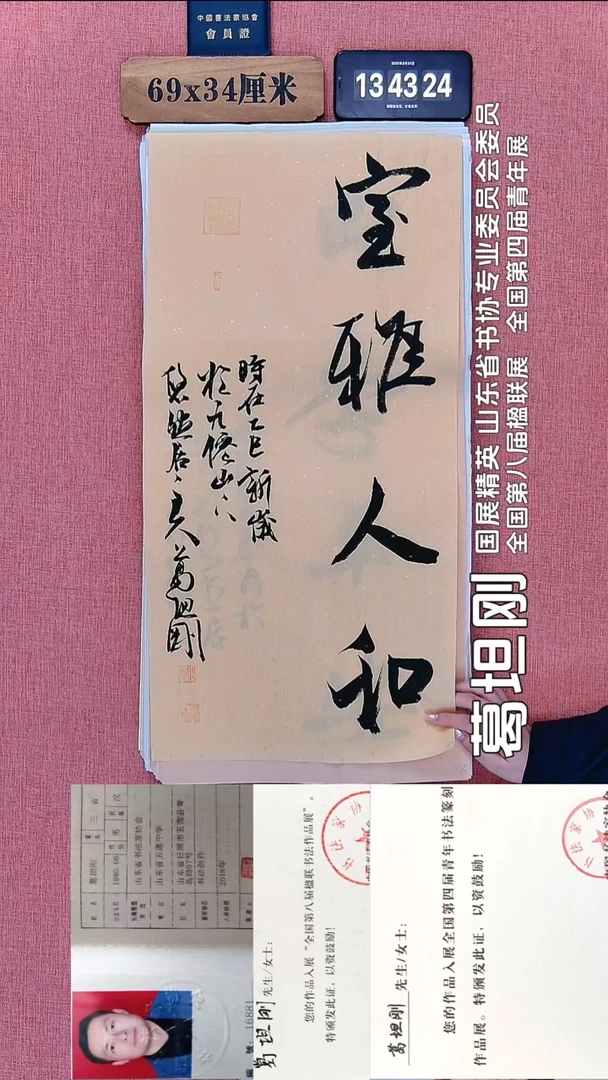 中國書法家協會
會員證
69x34厘米
13 43 24
室雅人和
時在乙巳新歲
於九僊山下
悠然居主人葛坦剛
葛坦刚
国展精英 山东省书协专业委员会委员
全国第八届楹联展 全国第四届青年展
姓名 葛坦刚
1980.06
男
汉
山东省书法家协会
山东省五莲中学
书法创作
2018年
16881
葛坦刚 先生/女士:
您的作品入展“全国第八届楹联书法作品展”。
特颁发此证，以资鼓励！
葛坦刚 先生/女士:
您的作品入展全国第四届青年书法篆刻
作品展。特颁发此证，以资鼓励！